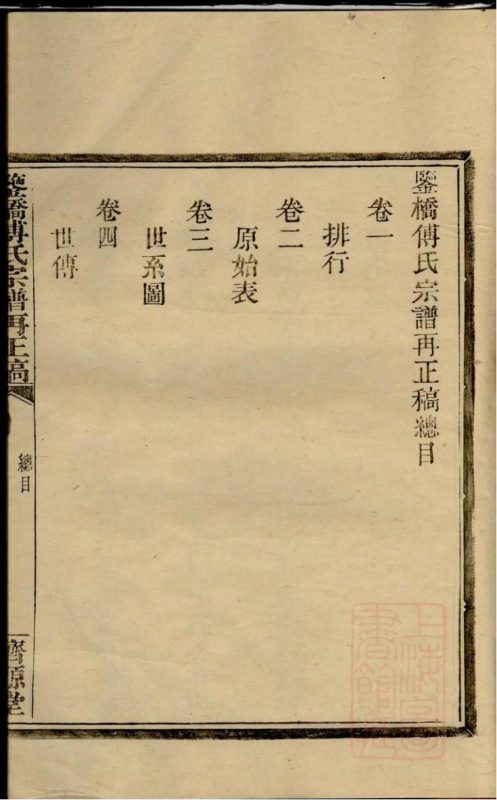 鑒橋傅氏宗譜再正稿總目
卷一
排行
卷二
原始表
卷三
世系圖
卷四
世傳
鑒橋傅氏宗譜再正稿
總目